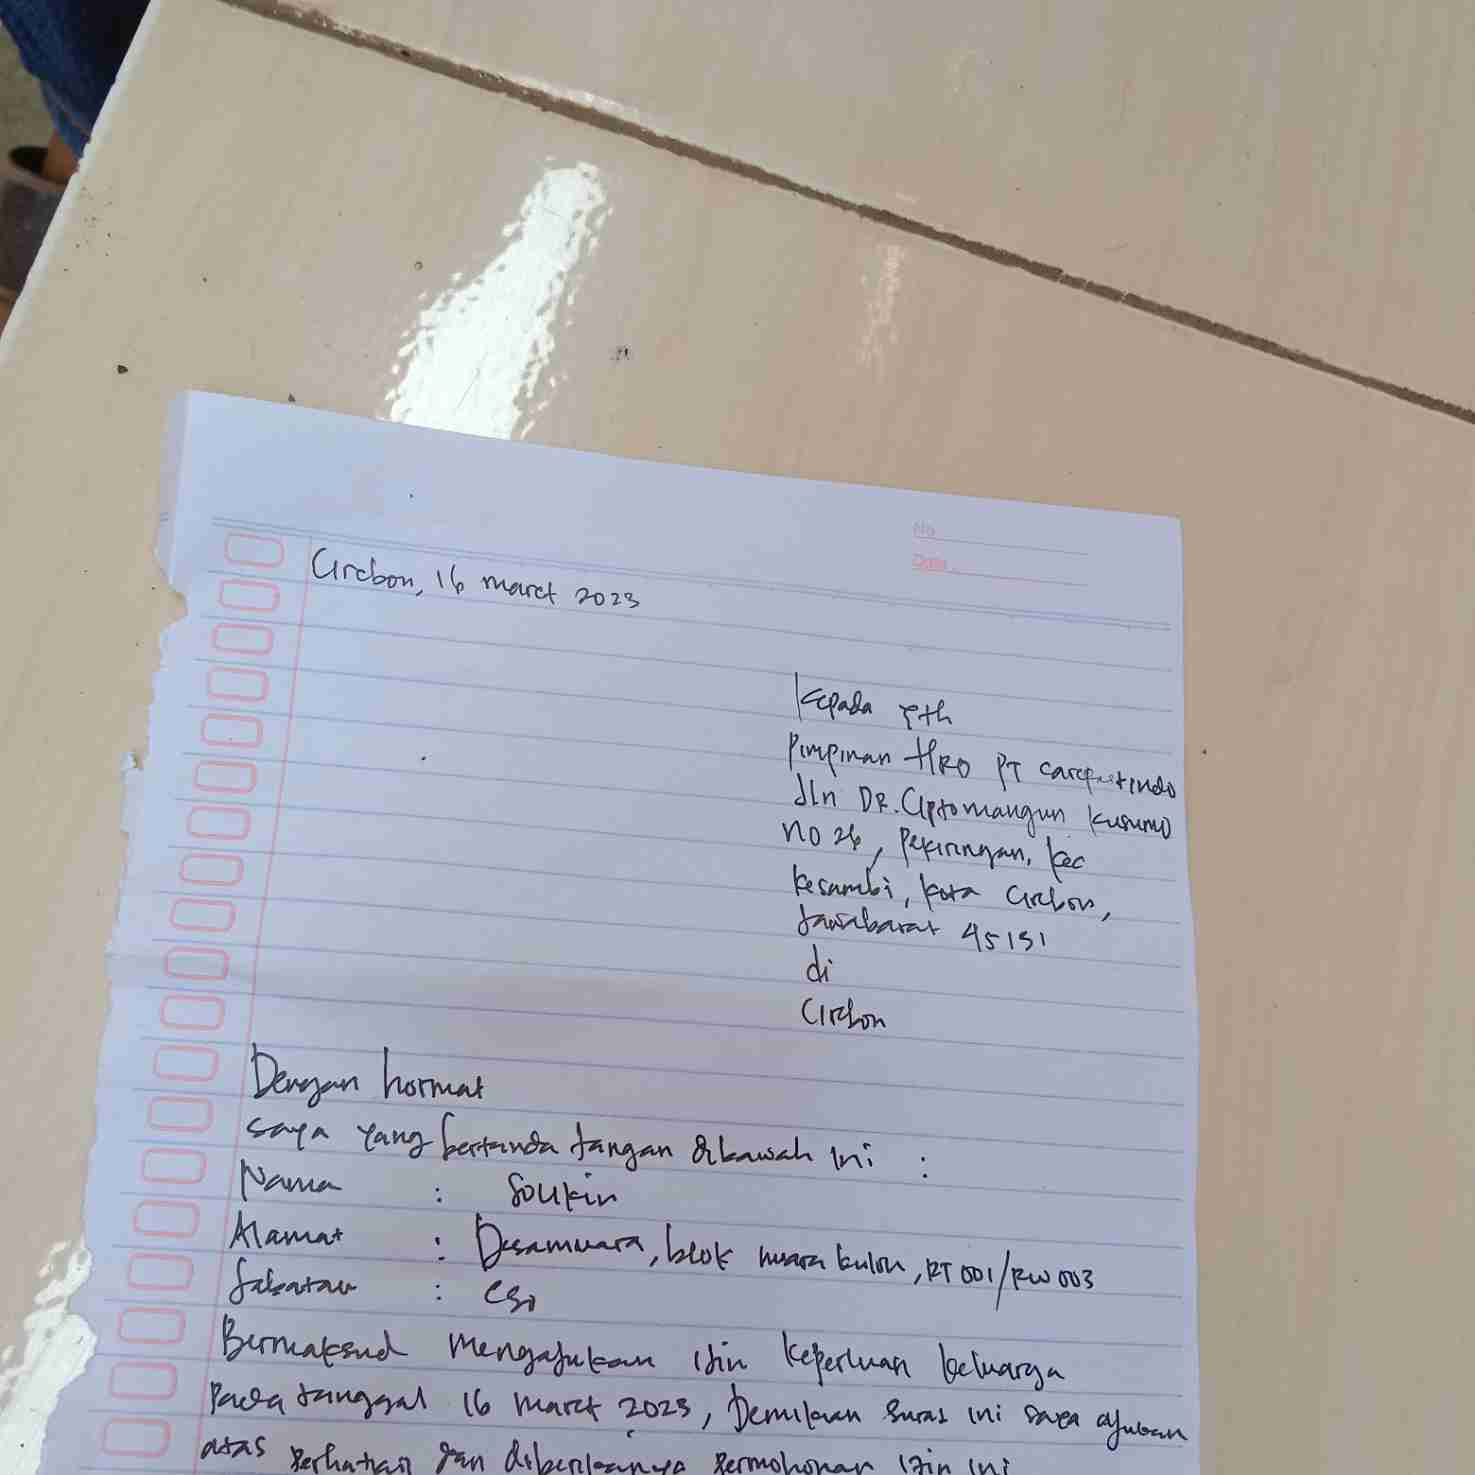 No
Date
Cirebon, 16 maret 2023
Kepada Yth
Pimpinan HRD PT
Jln DR. Ciptomangun Kusumo
no 26, Pekiringan, Kec
Kesambi, Kota Cirebon,
Jawabarat 45131
di
Cirebon
Dengan hormat
saya yang bertanda tangan dibawah ini :
Nama : Solikin
Alamat : Desamuara, blok muara kulon, RT 001/RW 003
Jabatan :
Bermaksud mengajukan izin keperluan keluarga
Pada tanggal 16 maret 2023, Demikian surat ini saya ajukan
atas perhatian dan diberikannya permohonan izin ini